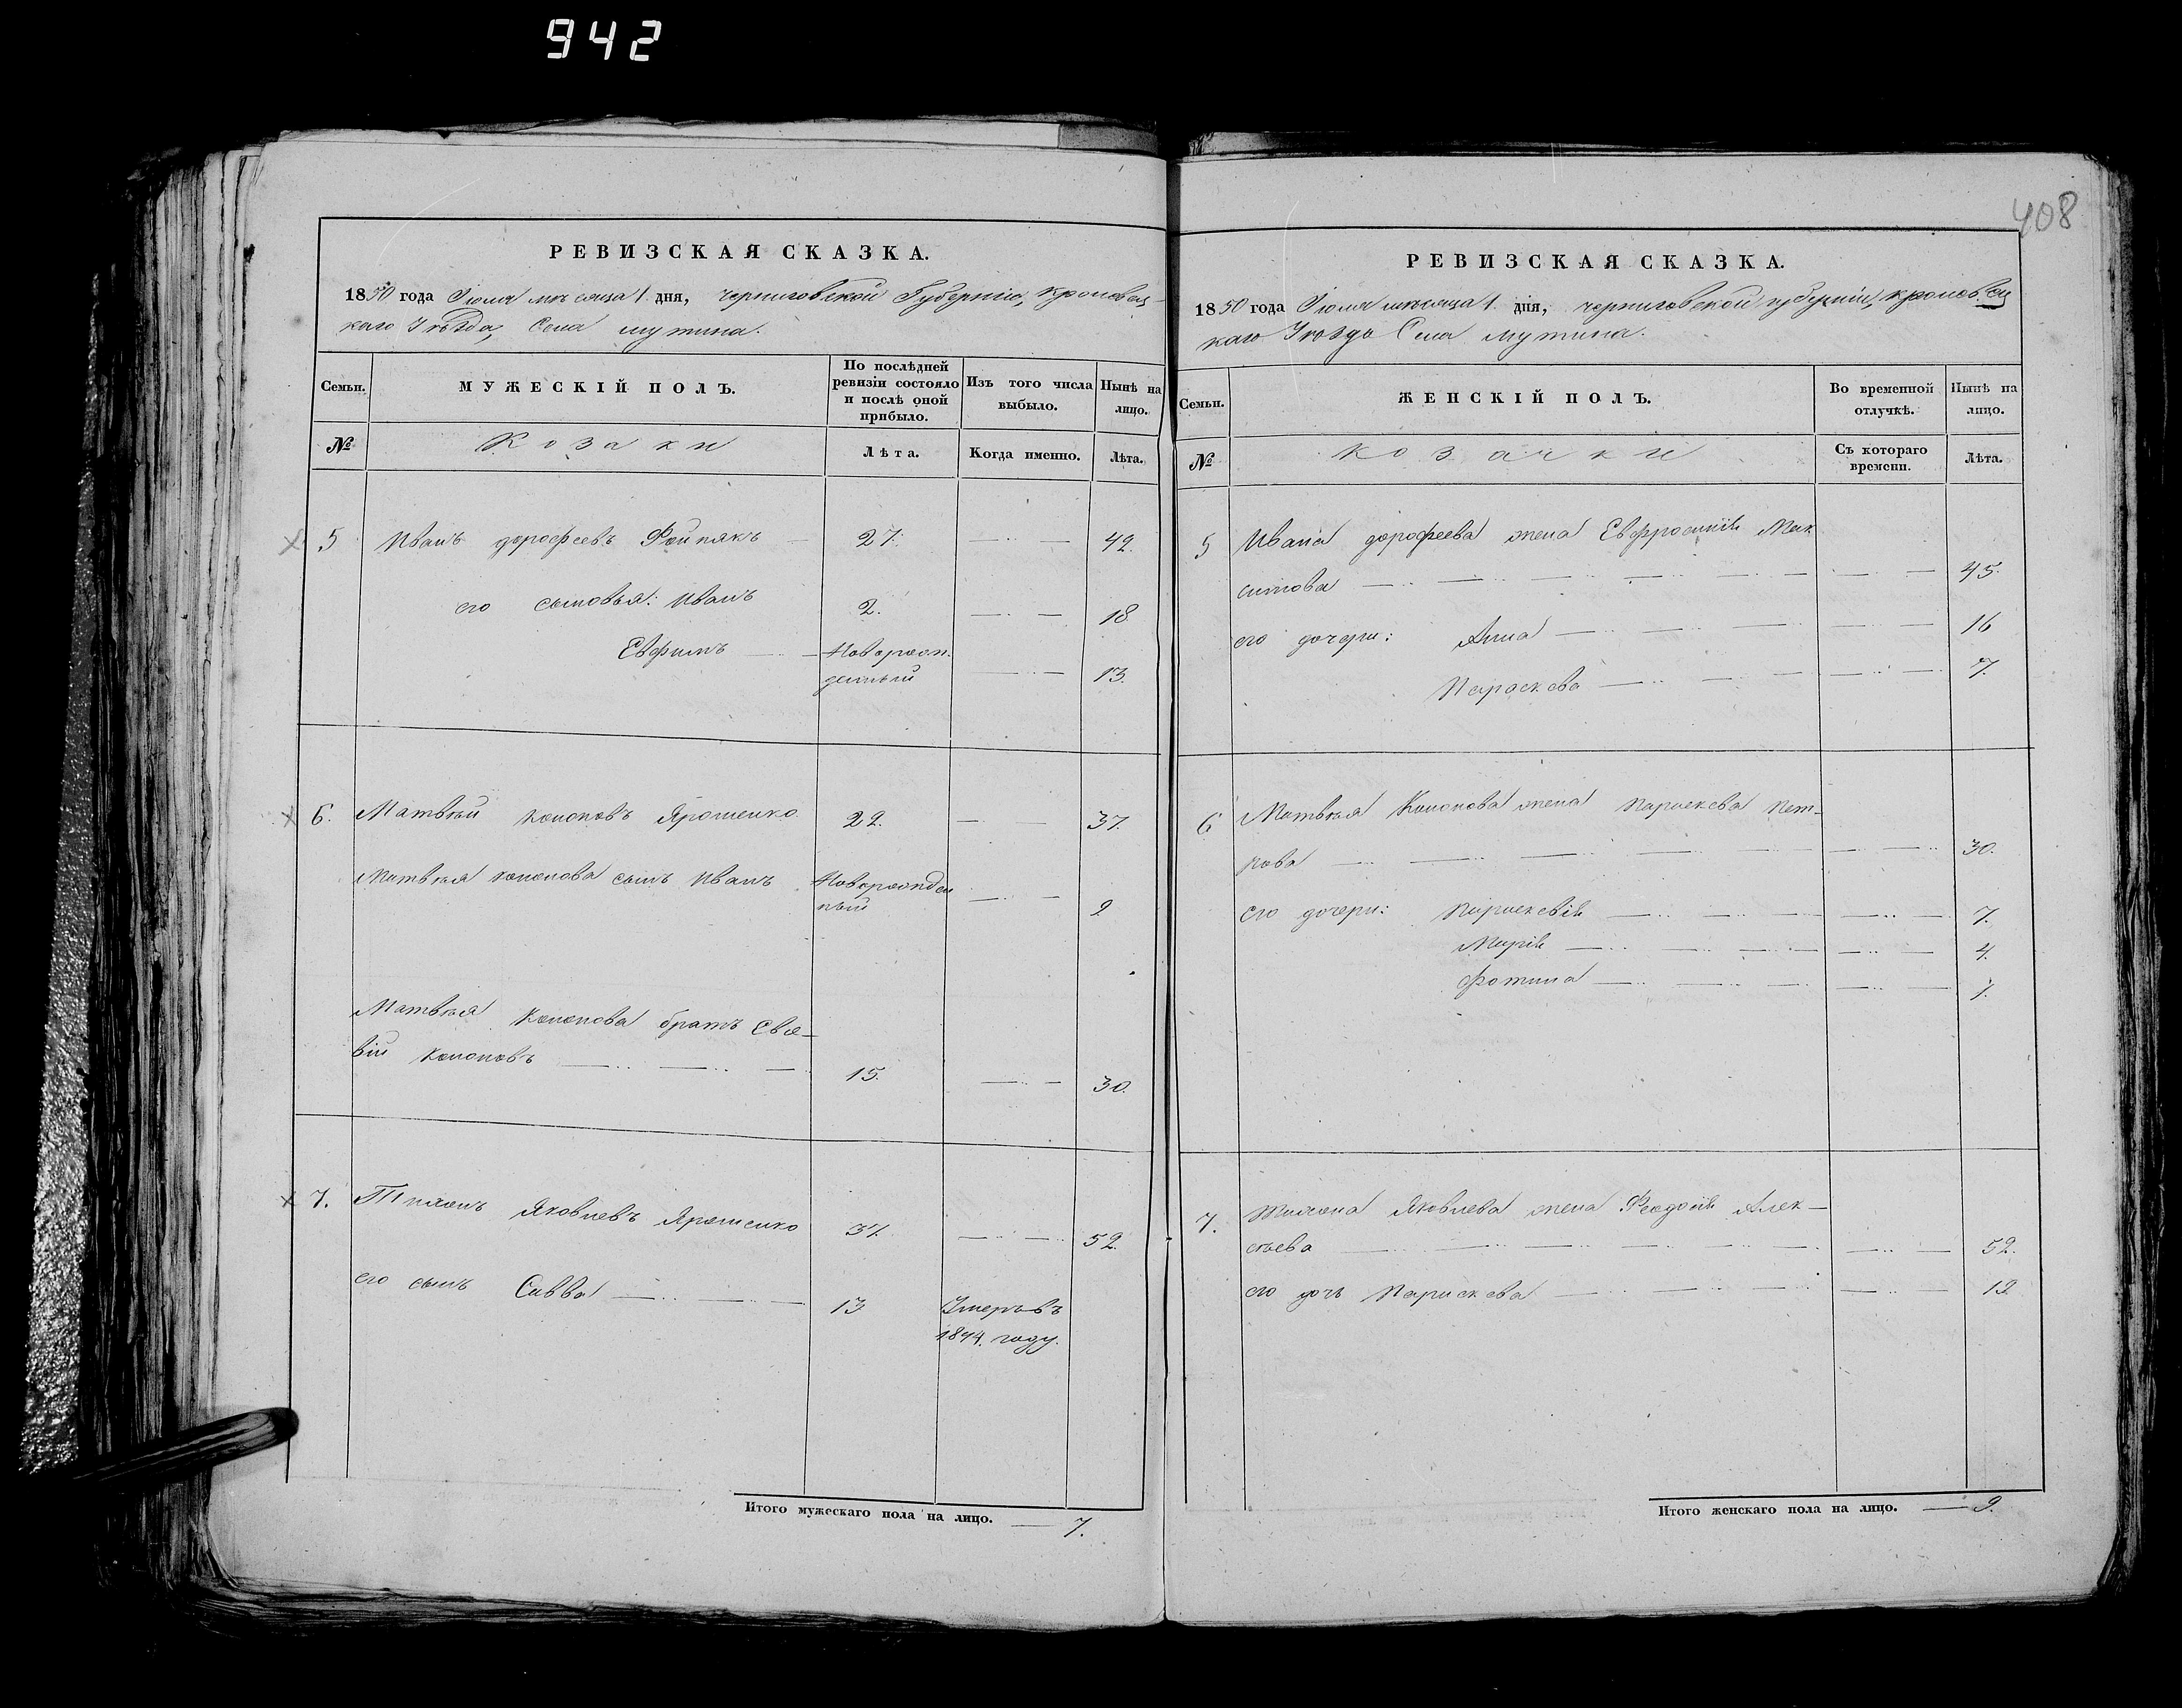 942
408
РЕВИЗСКАЯ СКАЗКА.
1850 года Іюля мѣсяца 1 дня, черниговской Губерніи, Кролевец-
каго Уѣзда, Села мутина.
Семьи.
МУЖЕСКІЙ ПОЛЪ.
По послѣдней ревизіи состояло и послѣ оной прибыло.
Изъ того числа выбыло.
Нынѣ на лицо.
№
Козаки
Лѣта.
Когда именно.
Лѣта.
5 Иванъ дорофеевъ 27. 42.
его сыновья: Иванъ 2. 18
Евфимъ Новорож- 13.
денный
6. Матвѣй Кононовъ Ярошенко 22. 37.
Матвѣя кононова сынъ Иванъ Новорожден 2
ный
Матвѣя Кононова братъ
Кононовъ 15. 30.
7. Яковлевъ Ярошенко 37. 52.
его сынъ Савва 13 Умеръ въ
1844. году.
Итого мужескаго пола на лицо. 7.
РЕВИЗСКАЯ СКАЗКА.
1850 года Іюля мѣсяца 1. дня, черниговской губерніи, кролевец
каго Уѣзда Села мутина.
Семьи.
ЖЕНСКІЙ ПОЛЪ.
Во временной отлучкѣ.
Нынѣ на лицо.
№
Козачки
Съ котораго времени.
Лѣта.
5 Ивана дорофеева жена Евфросинія Мак
симова 45.
его дочери: Анна 16
Параскева 7.
6 Матвѣя Кононова жена Параскева Пет-
рова 30.
его дочери: Параскевія 7.
Марія 4.
Фотина 1.
7. Яковлева жена Феодосія Алек-
сѣева 52.
его дочь Параскева 12
Итого женскаго пола на лицо. 9.